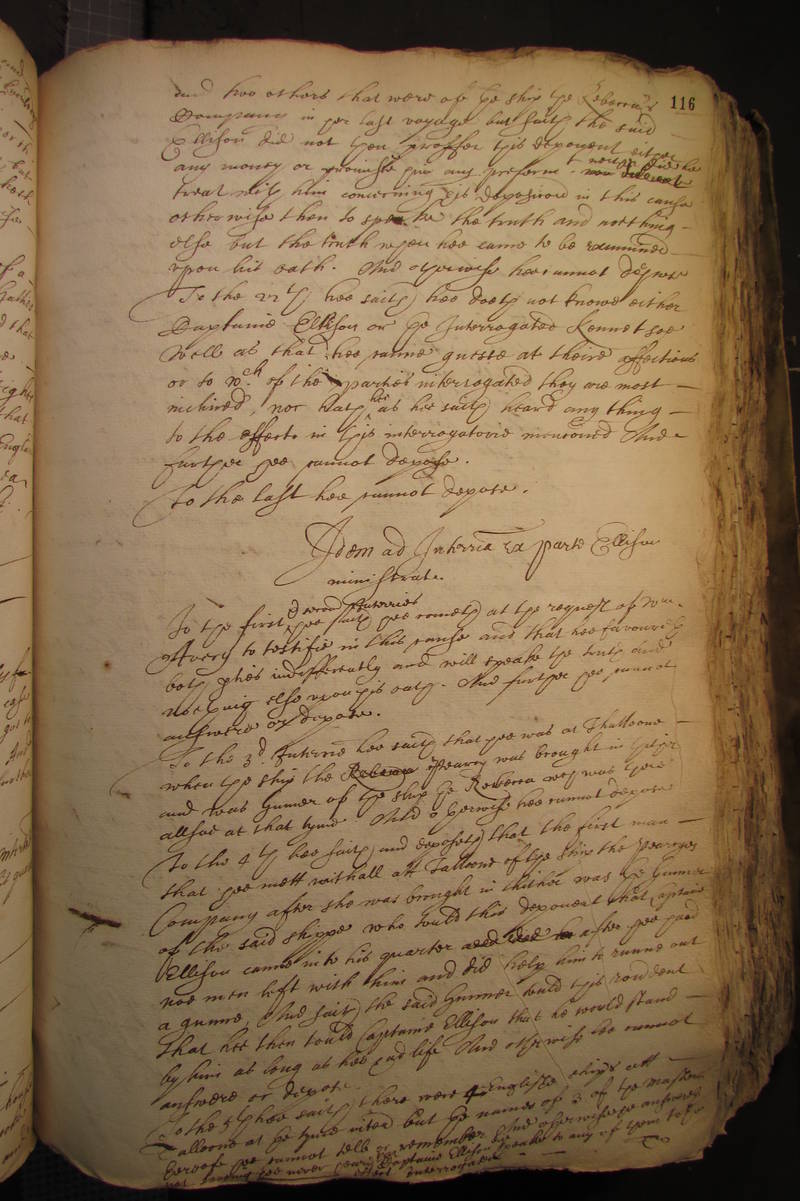 116
and two others that were of ye ship ye Rebecca's
Company in her last voyage but saith the said
Ellison did not then proffer this deponent either
any money or promise him any preferm.t neither did he
treat with him concerning his deposicon in this cause
otherwise then to speake the truth and nothing
else but the truth when hee came to be examined
upon his oath. And otherwise hee cannot depose
To the 22th hee saith hee doeth not knowe either
Captaine Ellison or ye Interrogated Kennet soe
well as that hee cann guesse at theire affections
or to wch of the parties interrogated they are most
inclined, nor hath hee as hee saith heard any thing
to the effects in this interrogatorie mencioned And
further hee cannot depose.
To the last hee cannot depose.
Idem ad Interria ex parte Ellison
ministrata.
To the first & second Interries hee saith hee cometh at the request of
Avery to testifie in this cause and that hee favoureth
both pties indifferently and will speake the truth and
nothing else upon his oath. And further hee cannot
answere or depose.
To the 3d. Interrie hee saith that hee was at Talloone
when the ship the Pearcy was brought in thither
and was Gunner of the ship ye Rebecca wch was there
allsoe at that tyme And otherwise hee cannot depose
To the 4th hee saith and deposeth that the first man
that hee mett withall att Talloone of the ship the Pearcyes
Company after she was brought in thither was the Gunner
of the said shippe who tould this deponent that Captaine
Ellison came into his quarter after hee had
noe men left with him and did help him to runne out
a gunne, And saith the said Gunner tould this rondent
that hee then tould Captaine Ellison that he would stand
by him as long as hee had life And otherwise hee cannot
answere or depose.
To the 5th hee saith there were 4 English ships att
Talloone at the tyme interr but the names of 3 of the Masters
hereof hee cannot tell or remember And otherwise he answereth
not saving hee never heard Captaine Ellison speake to any of them to the
effect interrogated